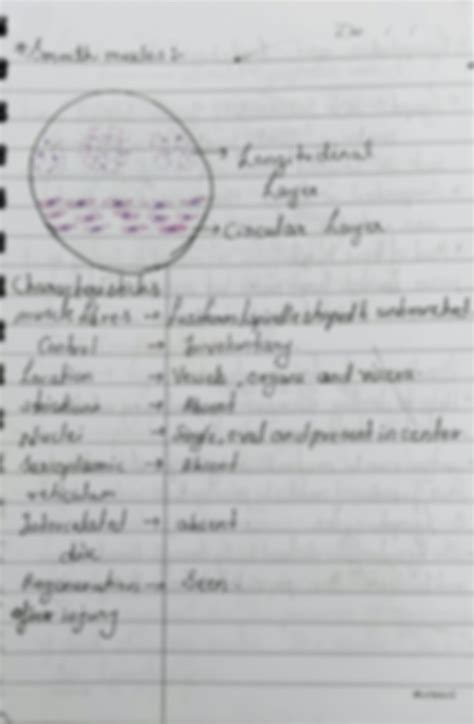 * Smooth muscles :
→ Longitudinal
Layer
→ Circular Layer
Characteristics
muscle fibres → fusiform, spindle shaped & unbranched.
Control → Involuntary
Location → Vessels, organs and viscera
striations → Absent
Nuclei → Single, oval and present in center
Sarcoplasmic → absent
reticulum
Intercalated → absent
disc
Regeneration → Seen
injury